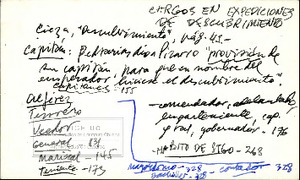 CARGOS EN EXPEDICIONES
DE DESCUBRIMIENTO
Cieza, "Descubrimiento", pág. 41-
Capitán: Pizarro "provisión de
su capitán, para que en nombre del
emperador hiciese el descubrimiento".
capitanes 155
Alférez
Tesorero
Veedor
General 131
Mariscal - 145
Teniente - 173
- comendador, adelantado,
gral, gobernador - 176
- HABITO DE - 268
mayordomo - 328 - contador - 328
- 328